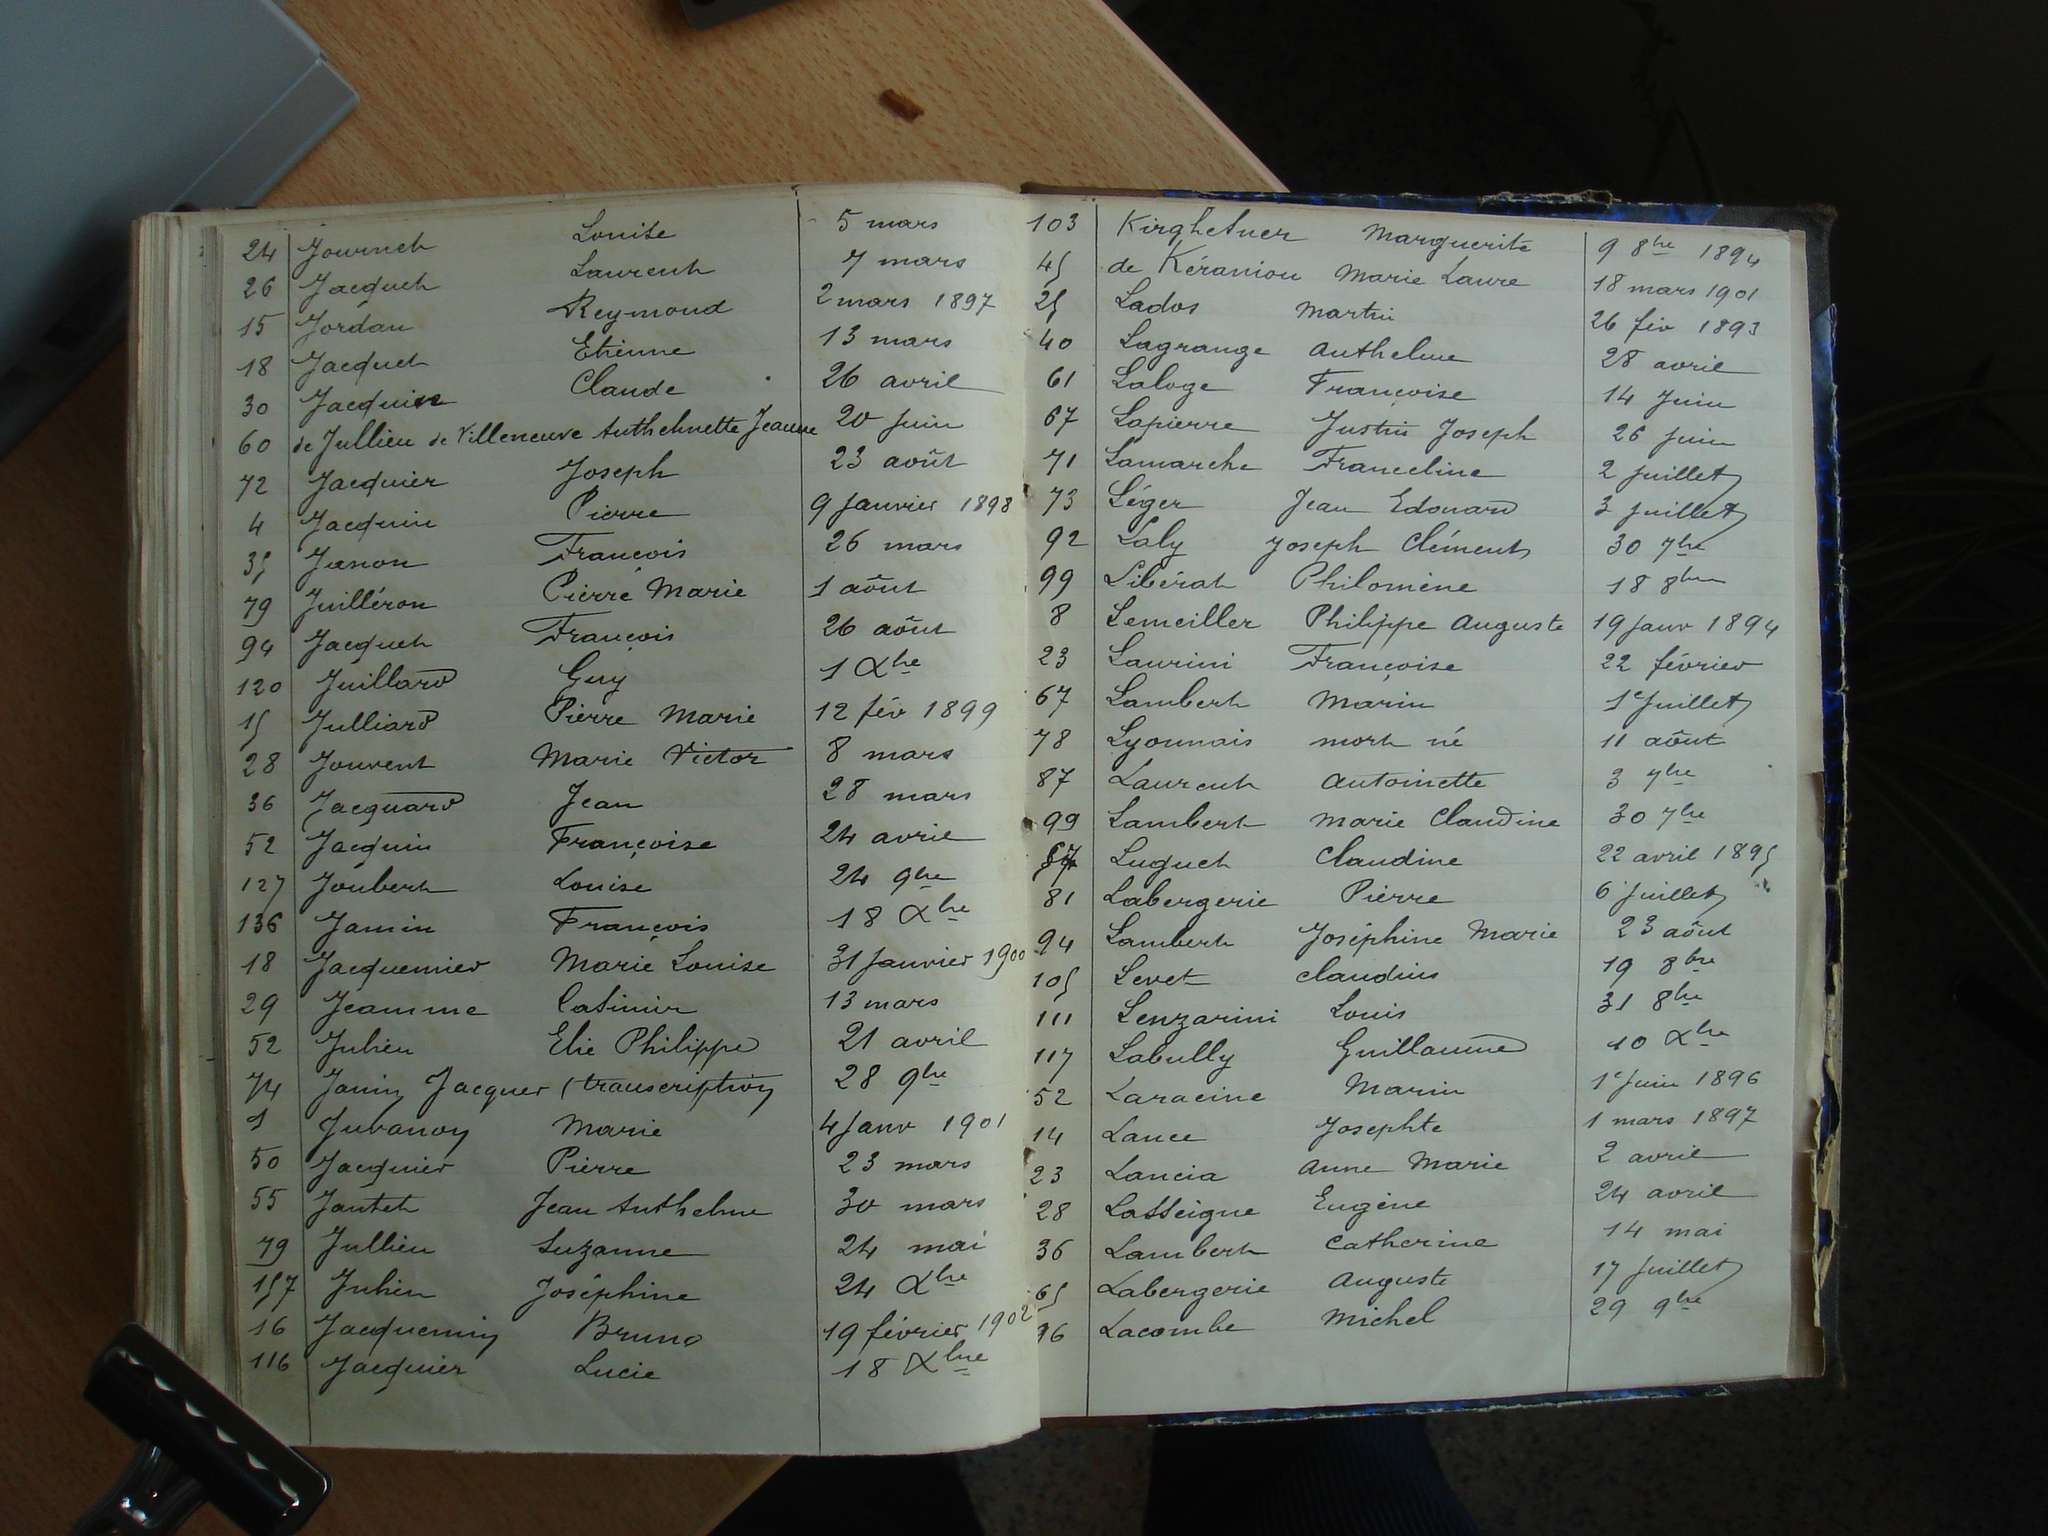 24 Journet Louise 5 mars
26 Jacquet Laurent 7 mars
15 Jordan Reymond 2 mars 1897
18 Jacquet Etienne 13 mars
30 Jacquin Claude 26 avril
60 de Jullien de Villeneuve Anthelmette Jeanne 20 juin
72 Jacquier Joseph 23 août
4 Jacquin Pierre 9 Janvier 1898
35 Janon François 26 mars
79 Juilléron Pierre Marie 1 aôut
94 Jacquet François 26 aôut
120 Juillard Guy 1 Xbre
15 Julliard Pierre Marie 12 fév 1899
28 Jouvent Marie Victor 8 mars
36 Jacquard Jean 28 mars
52 Jacquin Françoise 24 avril
127 Joubert Louise 24 9bre
136 Jamin François 18 Xbre
18 Jacquemier Marie Louise 31 Janvier 1900
29 Jeamme Casimir 13 mars
52 Julien Elie Philippe 21 avril
74 Janin Jacques (transcription 28 9bre
1 Jubanoy Marie 4 Janv 1901
50 Jacquier Pierre 23 mars
55 Jantet Jean Anthelme 30 mars
79 Jullien Suzanne 24 mai
157 Julien Joséphine 24 Xbre
16 Jacquemin Bruno 19 février 1902
116 Jacquier Lucie 18 Xbre
103 Kirghetner Marguerite 9 8bre 1894
45 de Kéraniou Marie Laure 18 mars 1901
25 Lados Martin 26 fév 1893
40 Lagrange Anthelme 28 avril
61 Laloge Françoise 14 Juin
67 Lapierre Justin Joseph 26 juin
71 Lamarche Franceline 2 juillet
73 Léger Jean Edouard 3 juillet
92 Laly Joseph Clément 30 7bre
99 Libérat Philomène 18 8bre
8 Lemeiller Philippe Auguste 19 Janv 1894
23 Laurini Françoise 22 février
67 Lambert Marin 1e Juillet
78 Lyonnais mort né 11 aôut
87 Laurent Antoinette 3 7bre
99 Lambert Marie Claudine 30 7bre
57 Luquet Claudine 22 avril 1895
81 Labergerie Pierre 6 Juillet
94 Lambert Joséphine Marie 23 aôut
105 Levet Claudius 19 8bre
111 Lenzarini Louis 31 8bre
117 Labully Guillaume 10 Xbre
52 Laracine Marin 1e Juin 1896
14 Lance Josephte 1 mars 1897
23 Lancia Anne Marie 2 avril
28 Lasseigne Eugène 24 avril
36 Lambert Catherine 14 mai
65 Labergerie Auguste 17 Juillet
96 Lacombe Michel 29 9bre